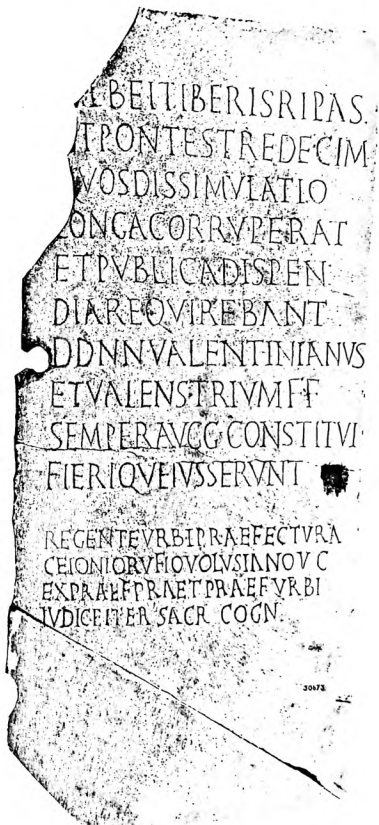 BEITIBERISRIPAS
TPONTESTREDECIM
VOSDISSIMVLATIO
ONGACORRVPERAT
ETPVBLICADISPEN
DIAREQVIREBANT
DDNNVALENTINIANVS
ETVALENSTRIVMFF
SEMPERAVGGCONSTITVI
FIERIQVEIVSSERVNT
REGENTEVRBIPRAEFECTVRA
CEIONIORVFIOVOLVSIANO V C
EXPRAEFPRAETPRAEFVRBI
IVDICEITER SACR COGN
30673